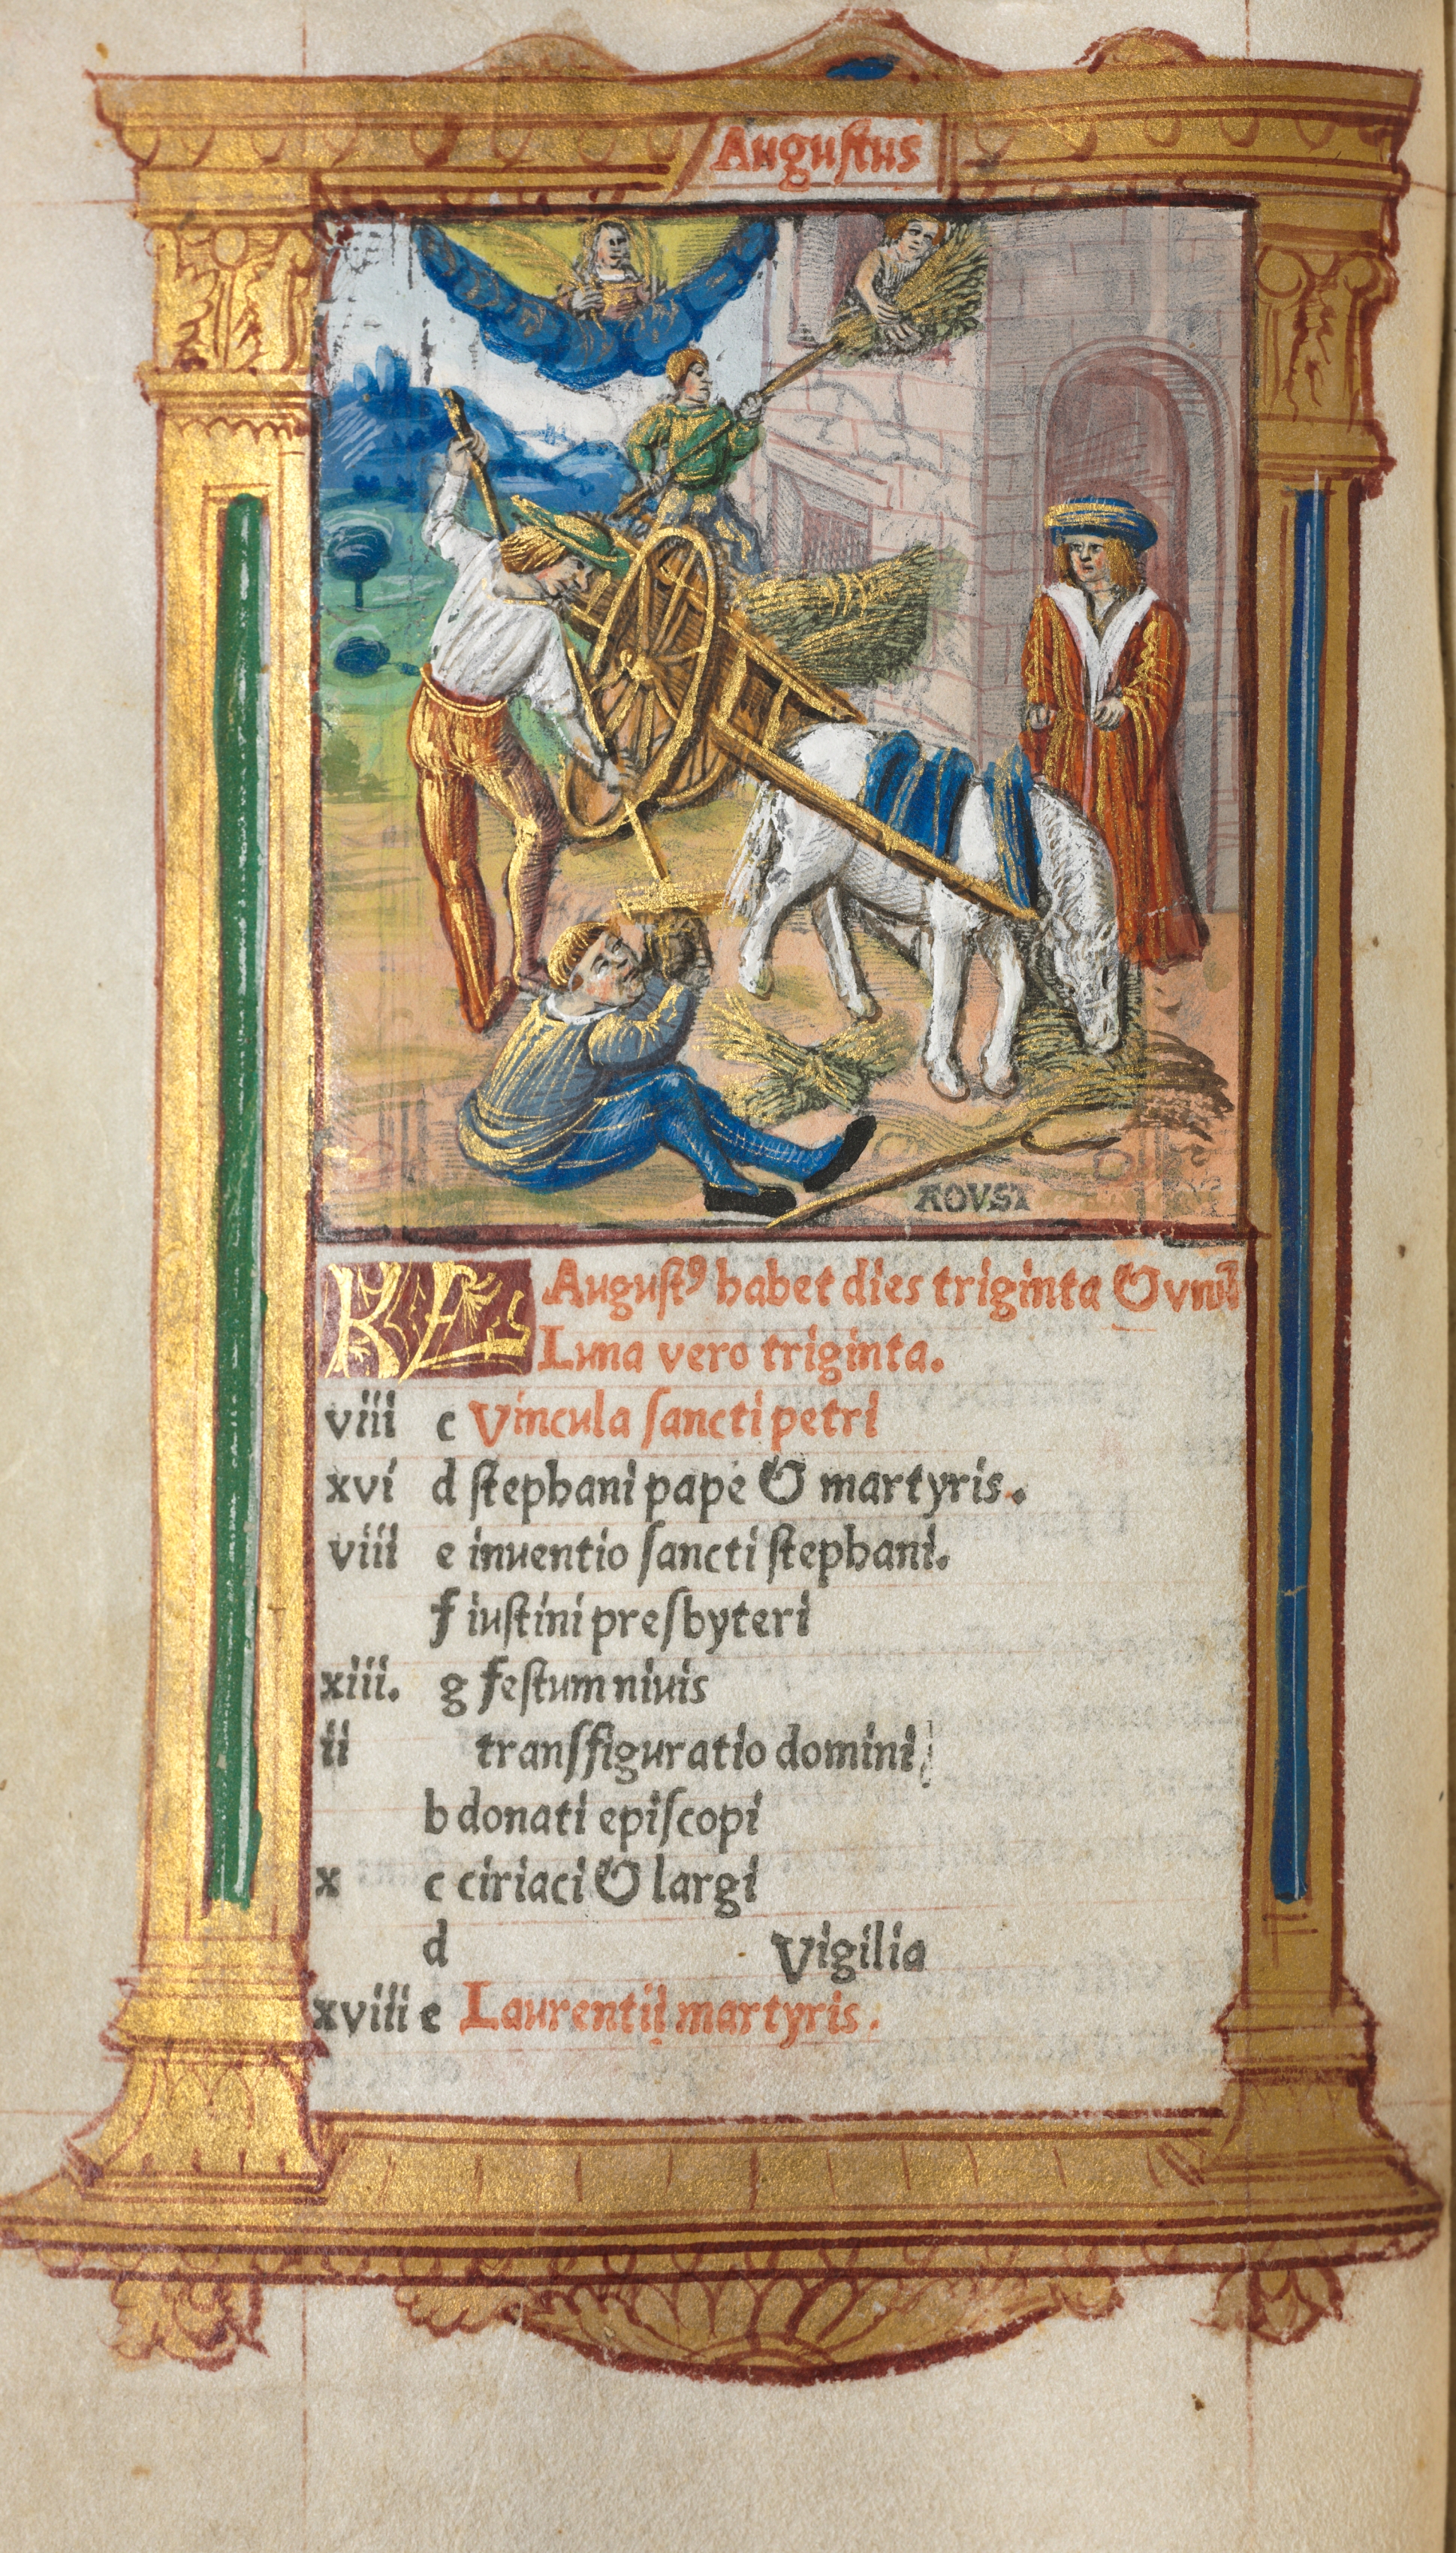 Auguſtus
AOVST
KL Auguſtꝰ habet dies triginta & vnū
Luna vero triginta.
viii c Vincula ſancti petri
xvi d ſtephani pape & martyris.
viii e inuentio ſancti ſtephani.
f iuſtini preſbyteri
xiii. g feſtum niuis
ii tranſfiguratio domini
b donati epiſcopi
x c ciriaci & largi
d Vigilia
xviii e Laurentii martyris.